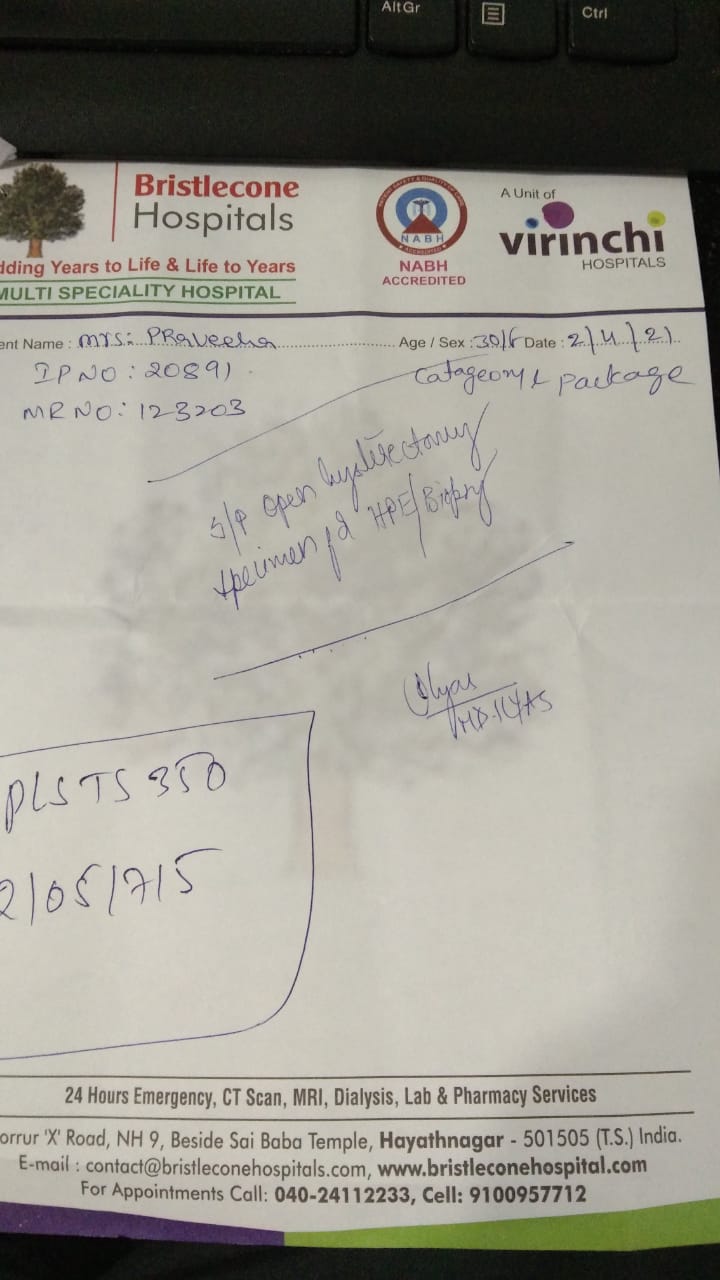 AltGr
Ctrl
Bristlecone
Hospitals
dding Years to Life & Life to Years
MULTI SPECIALITY HOSPITAL
NABH
NABH
ACCREDITED
A Unit of
virinchi
HOSPITALS
ent Name : mrs: PRaveena Age / Sex : 30/F Date : 2/4/21
IP NO : 20891
MR NO : 123203
package
S/P open
specimen HPE/Biopsy
MD.ILYAS
PLSTS 350
2/05/715
24 Hours Emergency, CT Scan, MRI, Dialysis, Lab & Pharmacy Services
orrur 'X' Road, NH 9, Beside Sai Baba Temple, Hayathnagar - 501505 (T.S.) India.
E-mail : contact@bristleconehospitals.com, www.bristleconehospital.com
For Appointments Call: 040-24112233, Cell: 9100957712